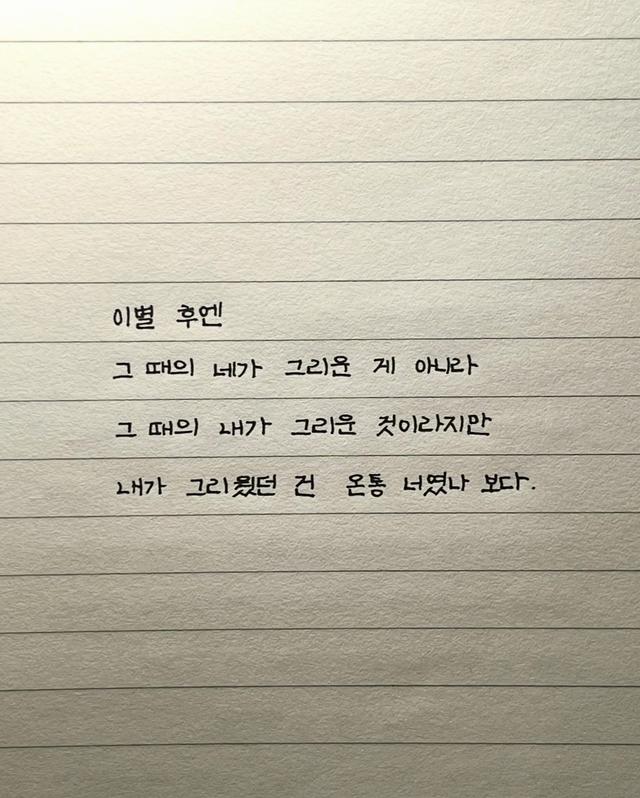 이별 후엔
그 때의 네가 그리운 게 아니라
그 때의 내가 그리운 것이라지만
내가 그리웠던 건 온통 너였나 보다.